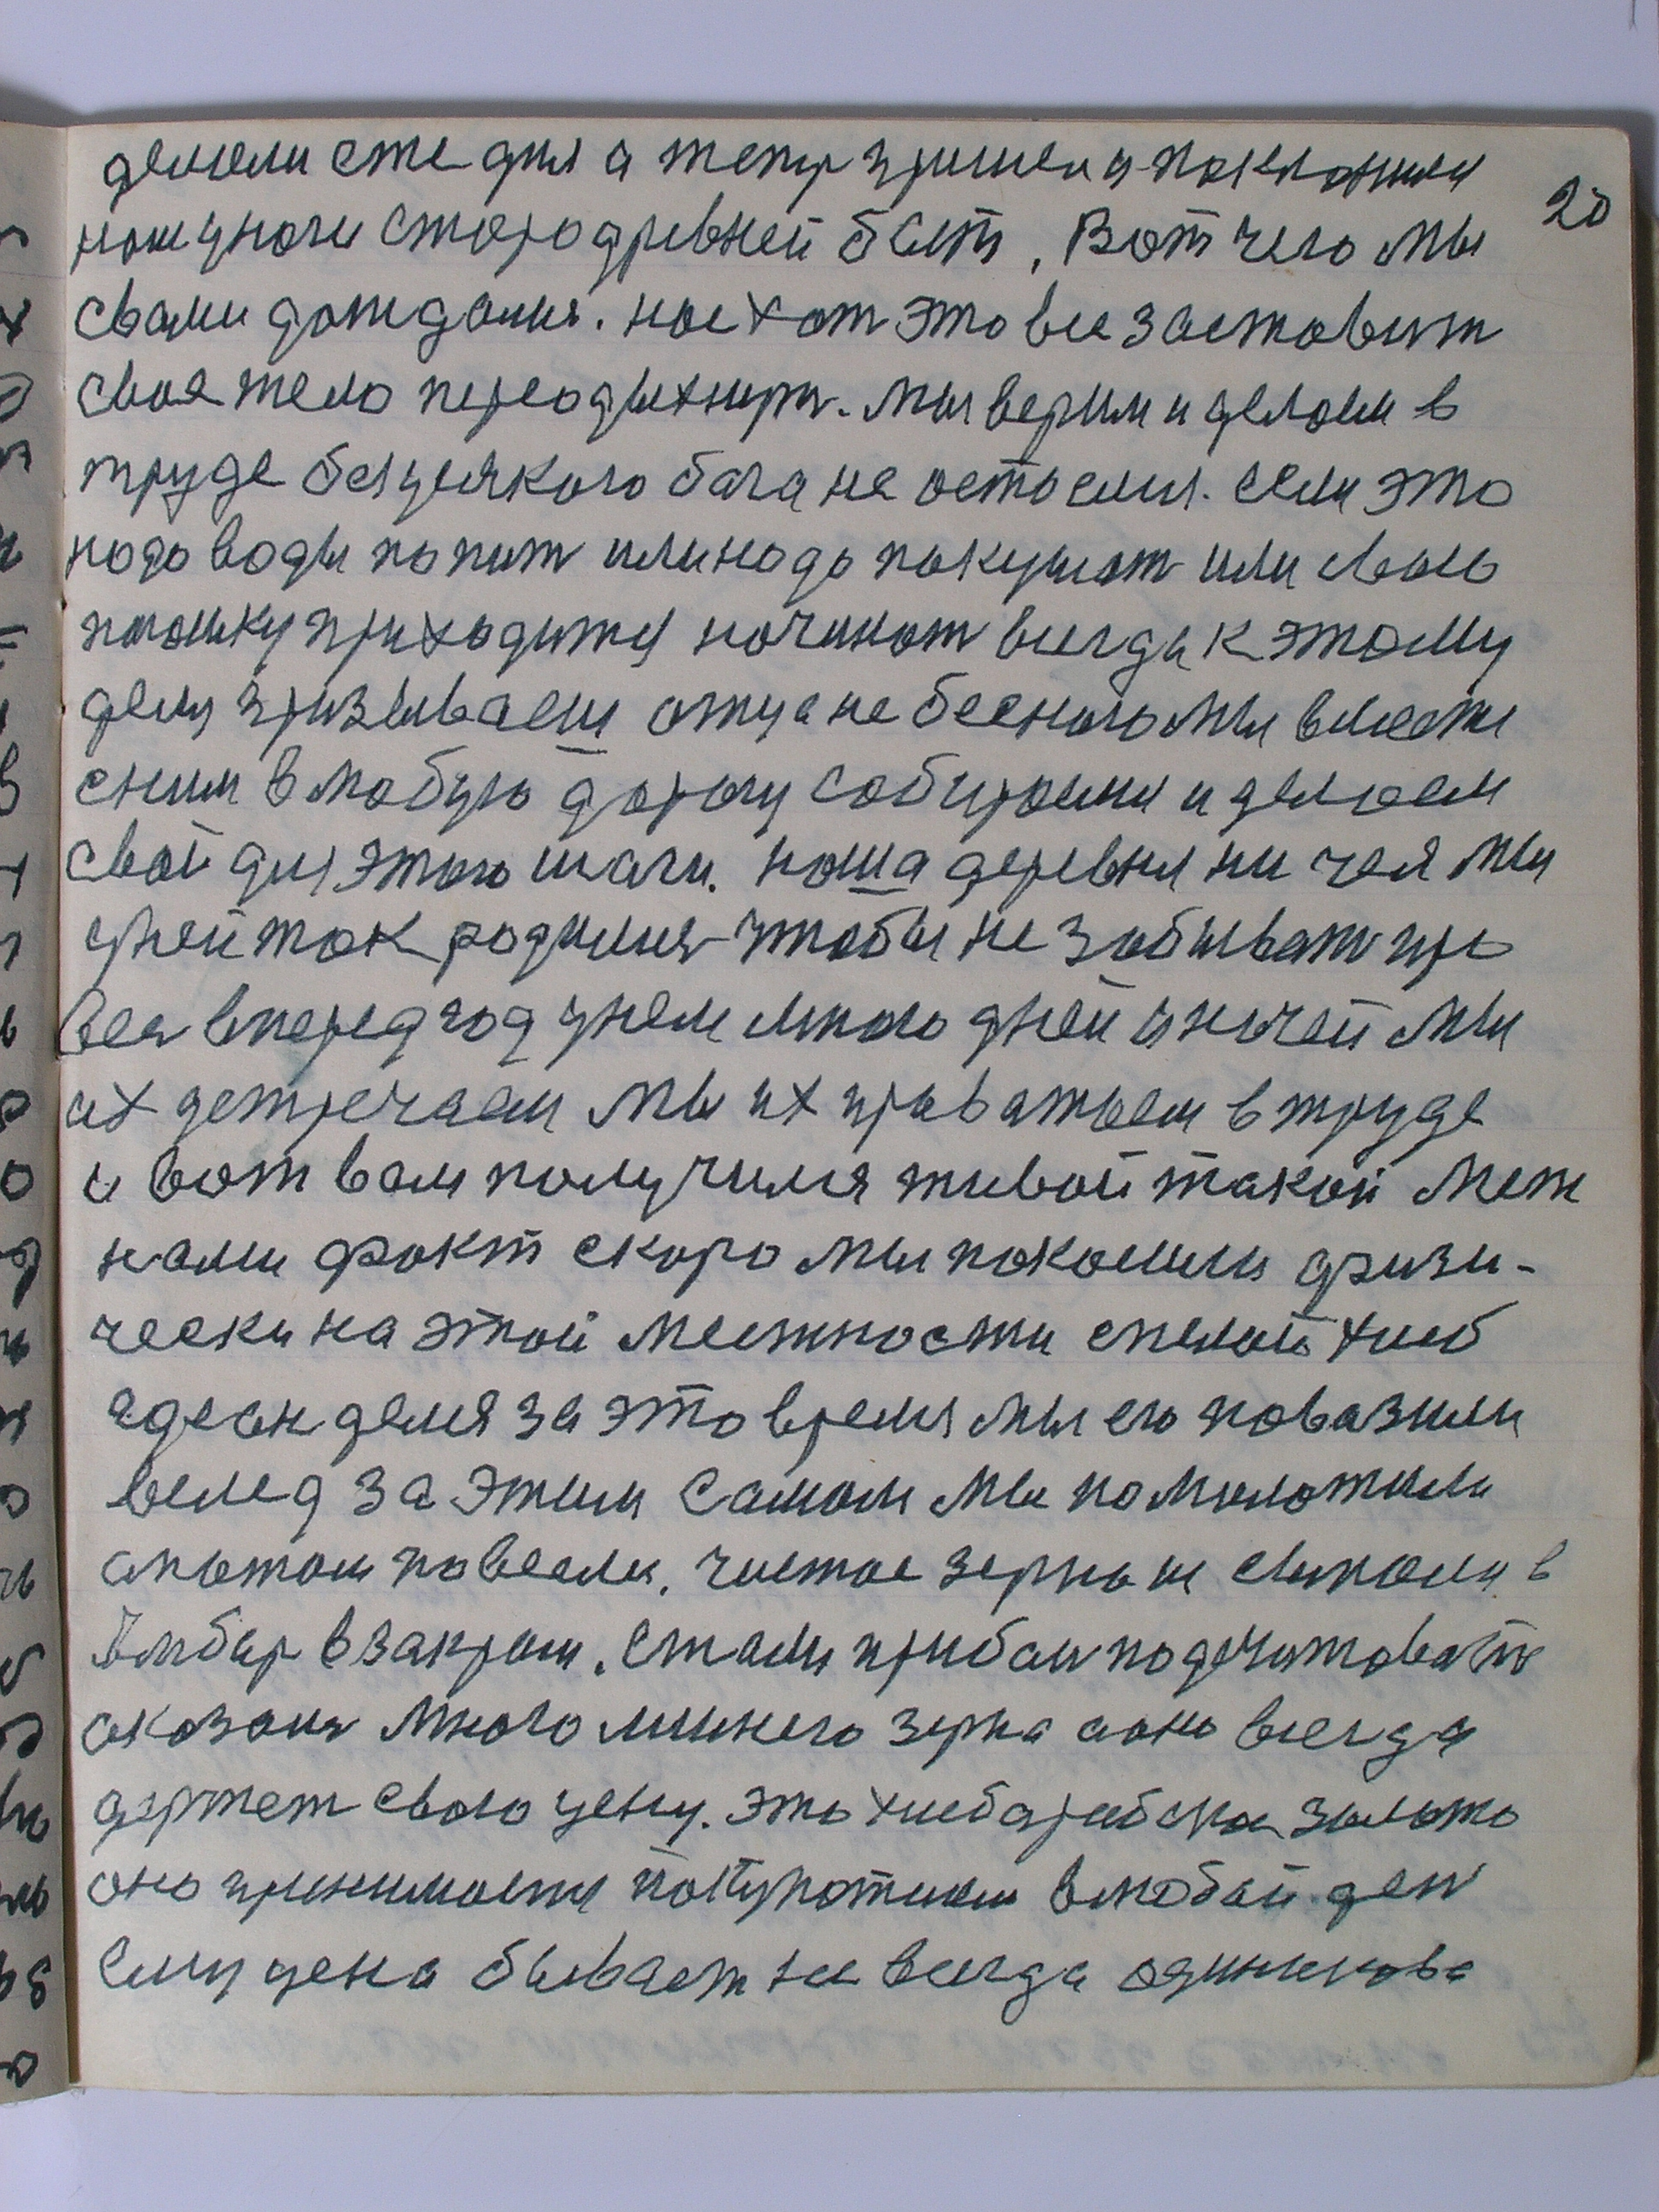 20
делали сте дня а тепер пришли и поклонили
нам уноги староdревней бытъ, Вот чего мы
свами дождались. нас хот это все заставит
своя тело переодыхнут. мы верим и делаем в
труде без усякого бага не остаемся. если это
надо воды попит или надо покушат или свою
пагашку приходится начинат всегда к этому
делу призываем отца небесного мы вместе
сним в любую дорогу собираемся и делаем
свои для этого шаги. наша деревня ни чея мы
уней так родились чтобы не забыват про
вся вперед год унем много дней и ночей мы
их устречаем мы их проважаем в труде
и вот вам получился живой такой меж
нами факт скоро мы покасили физи-
чески на этой местности спелой хлеб
за это время мы его повазили
вслед за этим самом мы помолотили
апотом повеели. чистое зерно и сыпали в
Амбар в закром. стали прибаи подсчитоват
оказался много лишнего зерна аоно всегда
держет свою цену. это хлебарабская золото
оно принимается в любой ден
ему цена бывает не всегда одинакова